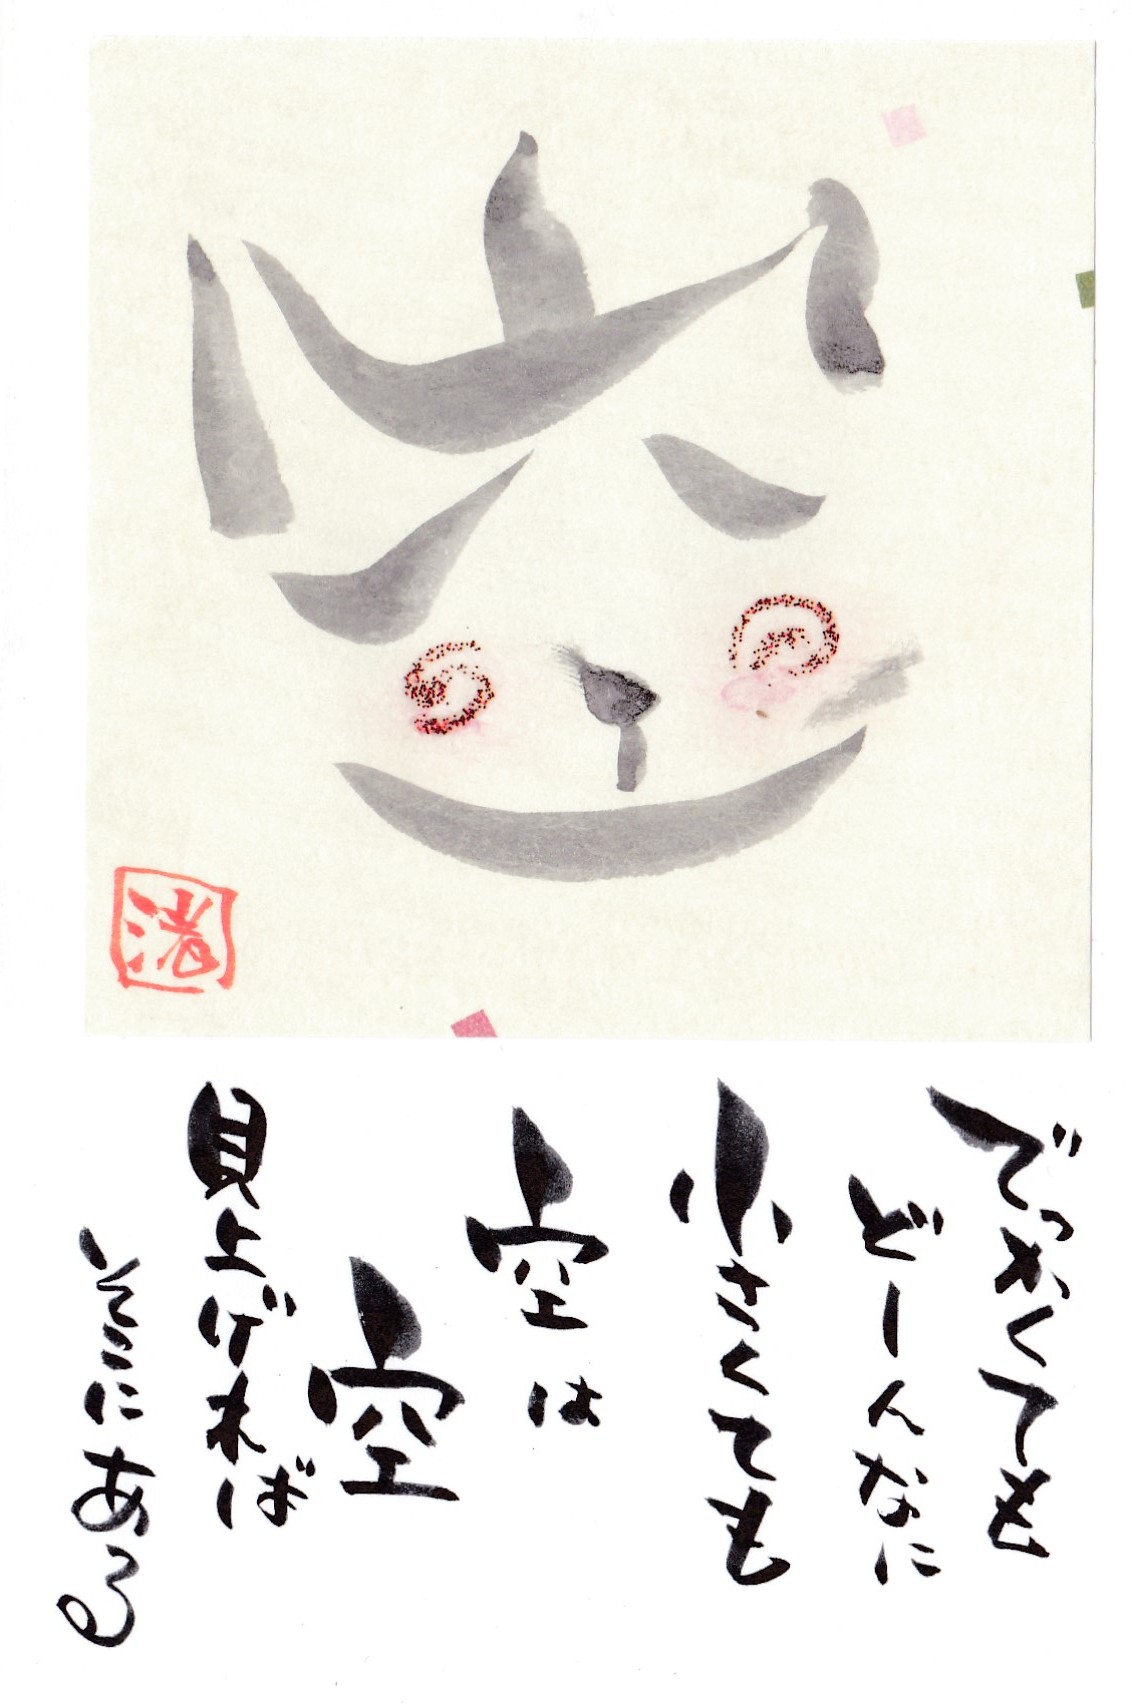 空
渚
でっかくても
どーんなに
小さくても
空は
空
見上げれば
そこにある